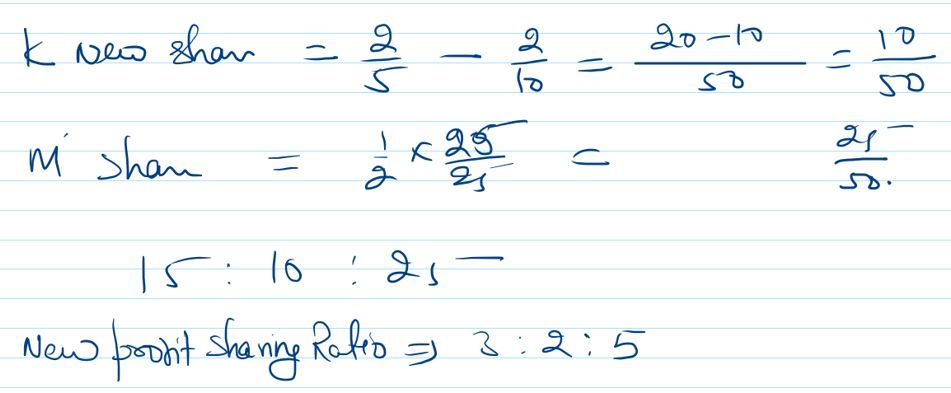 K New Share = 2/5 - 2/10 = 20-10/50 = 10/50
M' Share = 1/2 × 25/25 = 25/50.
15 : 10 : 25
New profit sharing Ratio ⇒ 3 : 2 : 5